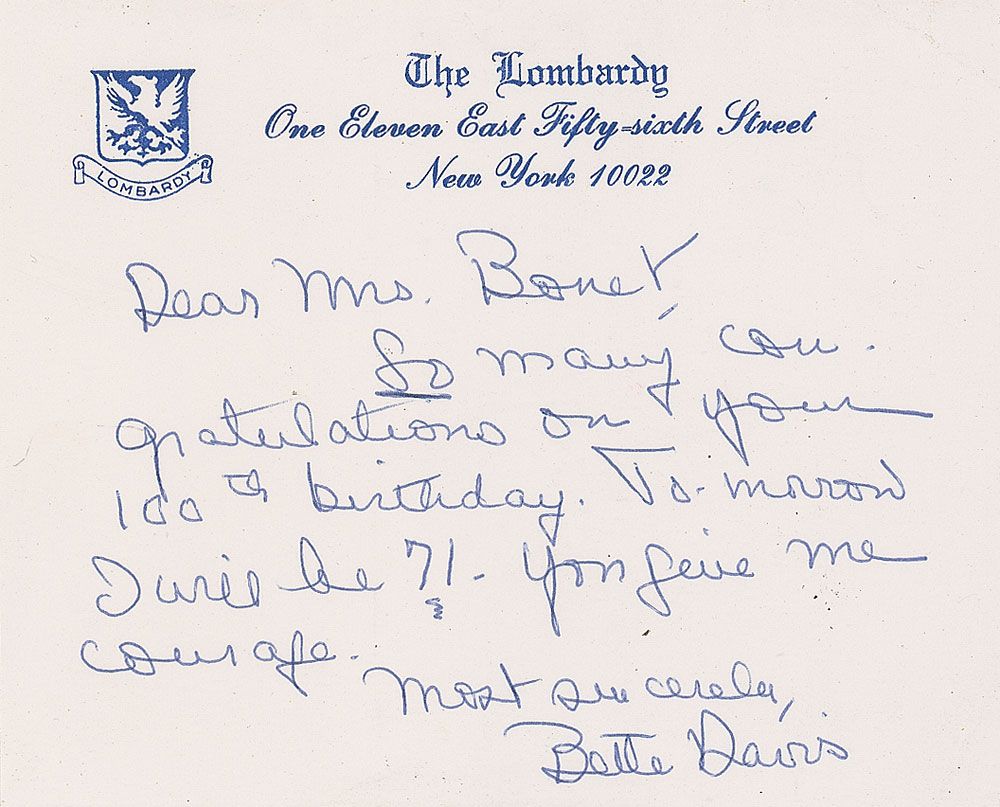 The Lombardy
One Eleven East Fifty-sixth Street
New York 10022
LOMBARDY
Dear Mrs. Bonet,
So many con-
gratulations on your
100th birthday. To-morrow
I will be 71 - You give me
courage.
Most sincerely,
Bette Davis